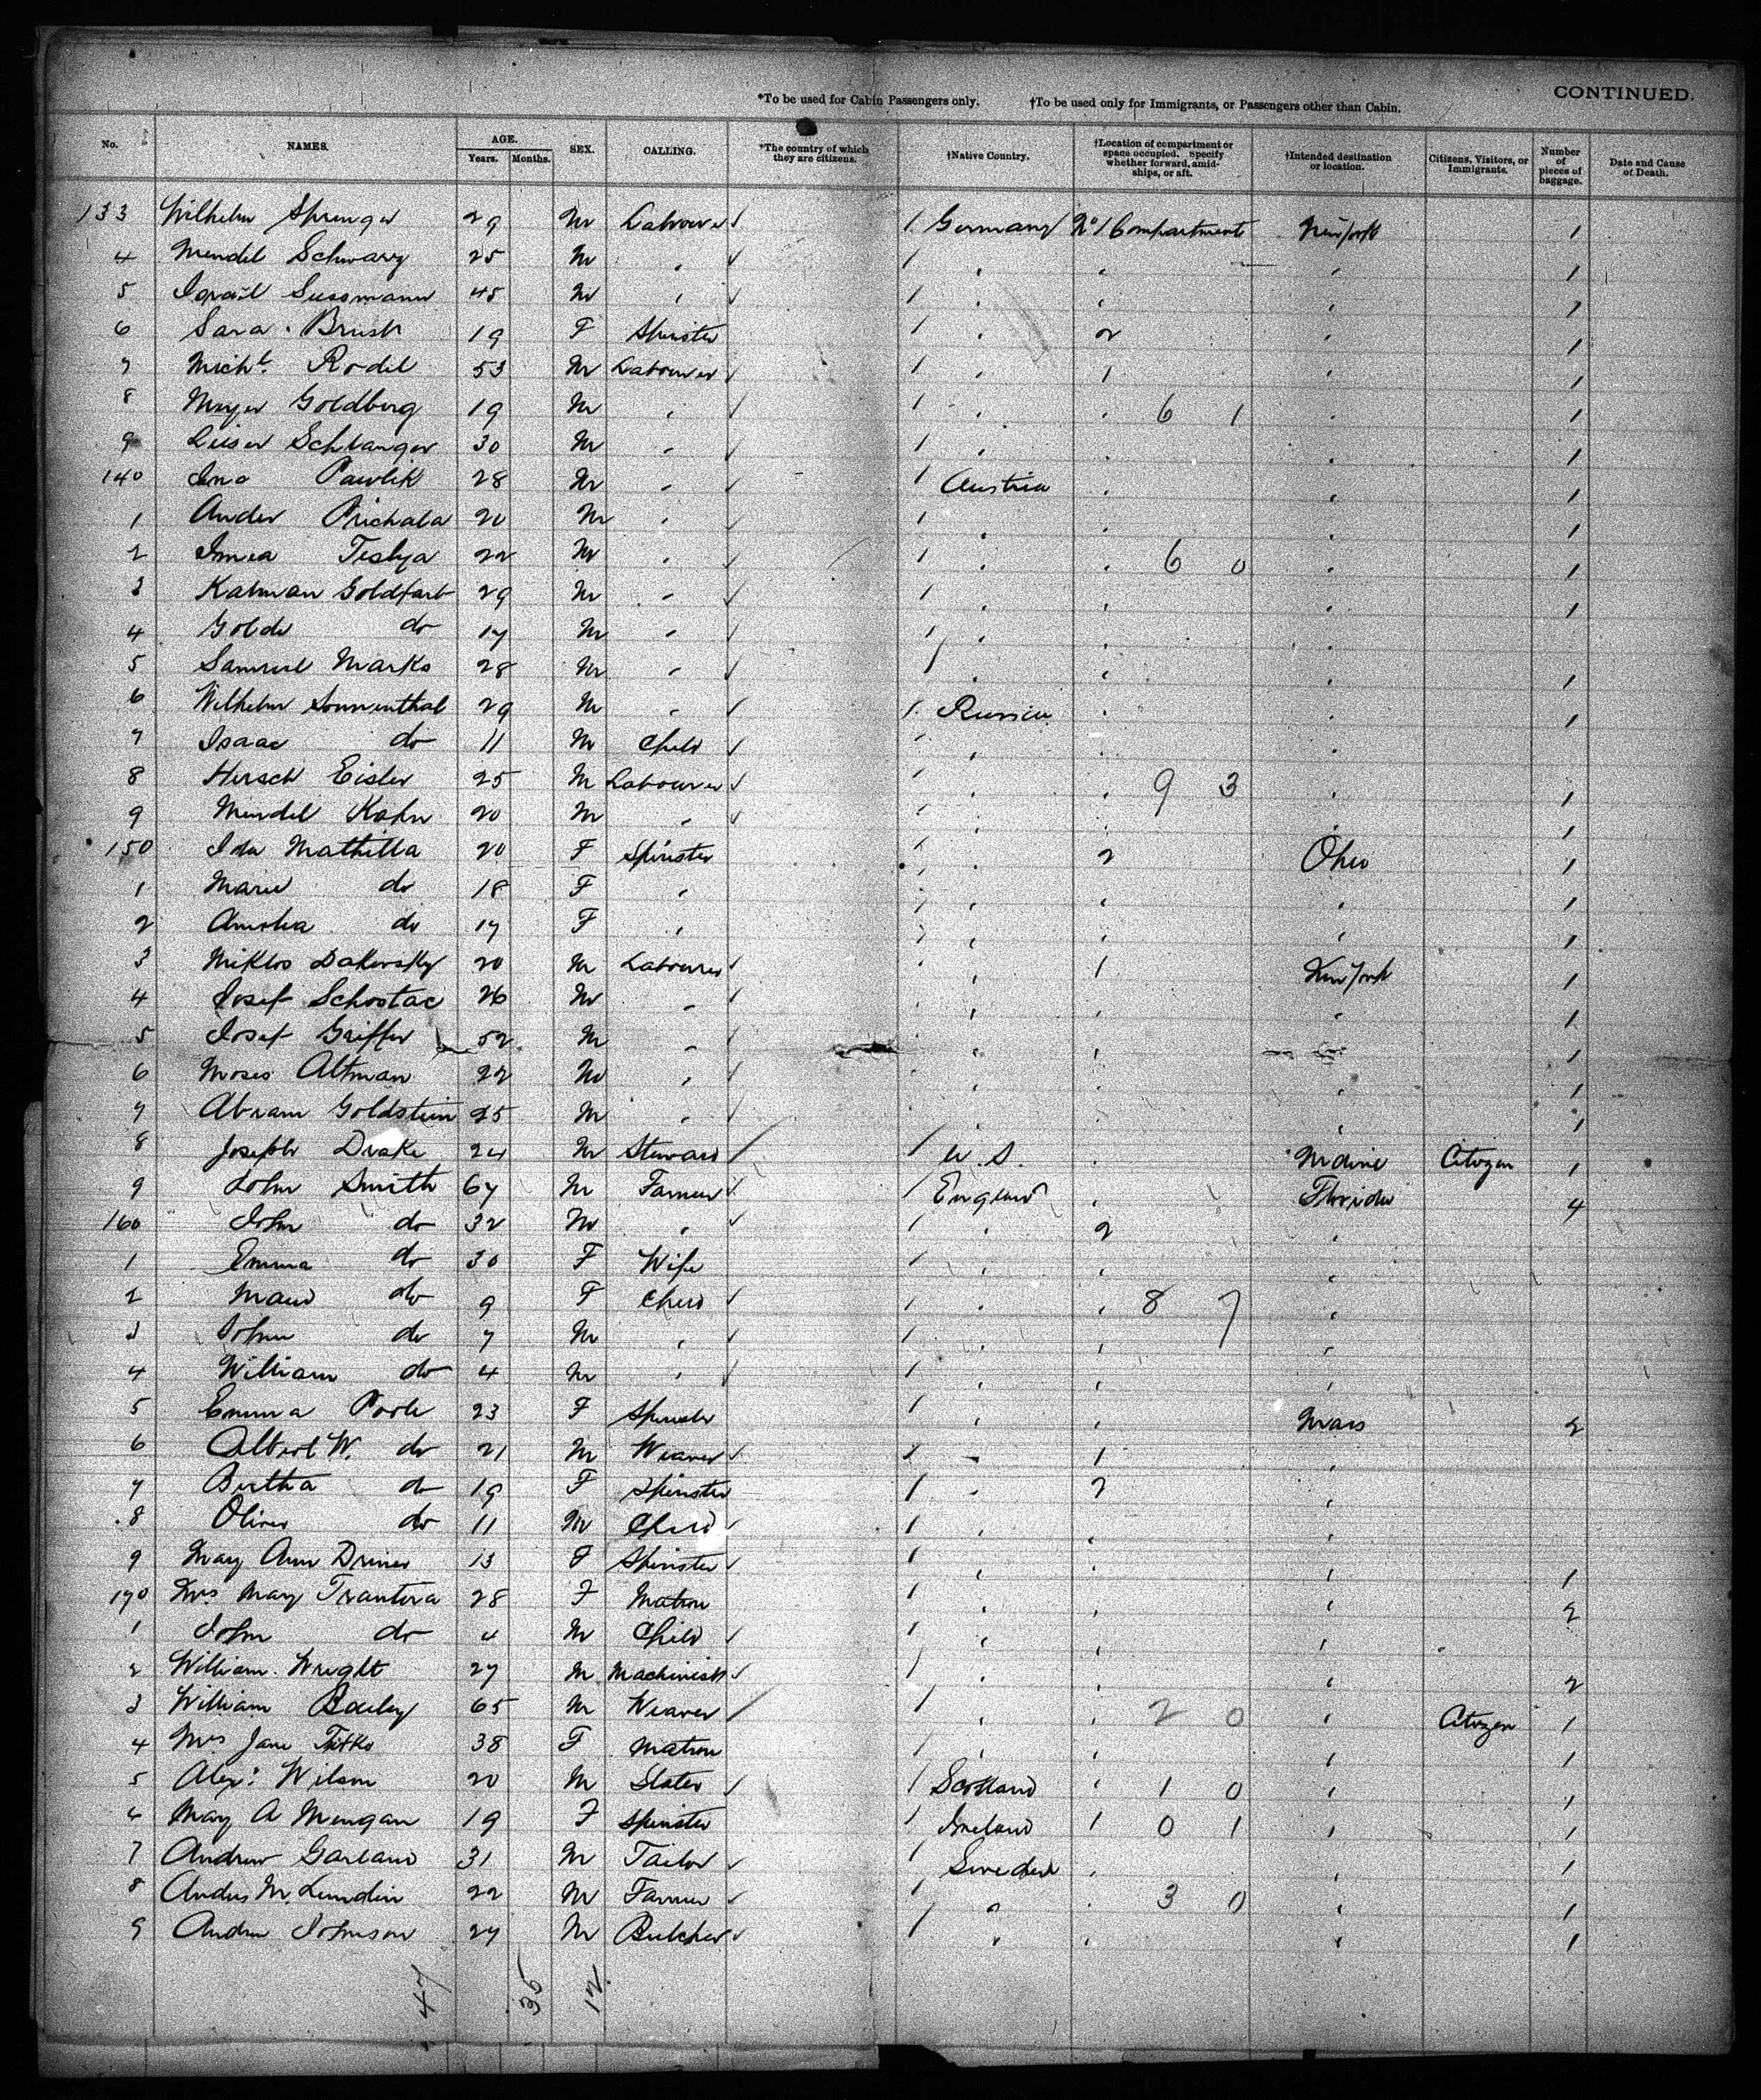 CONTINUED.
*To be used for Cabin Passengers only. †To be used only for Immigrants, or Passengers other than Cabin.
No. NAMES. AGE. Years. Months. SEX. CALLING. *The country of which they are citizens. †Native Country. †Location of compartment or space occupied. Specify whether forward, amidships, or aft. †Intended destination or location. Citizens, Visitors, or Immigrants. Number of pieces of baggage. Date and Cause of Death.
133 Wilhelm Sprenger 29 M Labourer 1 Germany No 1 Compartment New York 1
4 Mendel Schwarz 25 M " 1 " " " 1
5 Israil Sussmann 45 M " 1 " " " 1
6 Sara Brush 19 F Spinster 1 " 2 " 1
7 Michl. Rodel 53 M Labourer 1 " 1 " 1
8 Meyer Goldberg 19 M " 1 " " 6 1 " 1
9 Leiser Schlanger 30 M " 1 " " " 1
140 Pawlik 28 M " 1 Austria " " 1
1 Ander Prichala 20 M " 1 " " " 1
2 22 M " 1 " " 6 0 " 1
3 Kalman Goldfarb 29 M " 1 " " " 1
4 Golde do 17 M " 1 " " "
5 Samuel Marks 28 M " 1 " " " 1
6 Wilhelm Sonnenthal 29 M " 1 Russia " " 1
7 Isaac do 11 M Child 1 " " "
8 Hersch Eisler 25 M Labourer 1 " " 9 3 " 1
9 Mendel Kohn 20 M " 1 " " " 1
150 Ida Mathilla 20 F Spinster 1 " 2 Ohio 1
1 Marie do 18 F " 1 " " " 1
2 do 17 F " 1 " " " 1
3 Miklos Dakovsky 20 M Labourer 1 " 1 New York 1
4 Josef Schostac 26 M " 1 " " " 1
5 Josef Griffer 52 M " 1 " " " 1
6 Moses Altman 22 M " 1 " " " 1
7 Abram Goldstein 25 M " 1 " " " 1
8 Joseph Drake 24 M Steward 1 U.S. " Maine Citizen 1
9 John Smith 67 M Farmer 1 England " Florida 4
160 John do 32 M " 1 " 2 "
1 Emma do 30 F Wife 1 " " "
2 Maud do 9 F Child 1 " " 8 7 "
3 John do 7 M " 1 " " "
4 William do 4 M " 1 " " "
5 Emma Poole 23 F Spinster 1 " " Mass 2
6 Albert W. do 21 M Weaver 1 " 1 "
7 Bertha do 19 F Spinster 1 " 2 "
8 Oliver do 11 M Child 1 " " "
9 Mary Ann Driver 13 F Spinster 1 " " " 1
170 Mrs Mary Trantera 28 F Matron 1 " " " 2
1 John do 4 M Child 1 " " "
2 William Wright 27 M Machinist 1 " " " 2
3 William Bailey 65 M Weaver 1 " " 2 0 " Citizen 1
4 Mrs Jane 38 F Matron 1 " " " 1
5 Alexr. Wilson 20 M Slater 1 Scotland " 1 0 " 1
6 Mary A Mungan 19 F Spinster 1 Ireland 1 0 1 " 1
7 Andrew Garland 31 M Tailor 1 Sweden " " 1
8 Andus M. Lundin 22 M Farmer 1 " " 3 0 " 1
9 Andrew Johnson 27 M Butcher 1 " " " 1
47 35 12